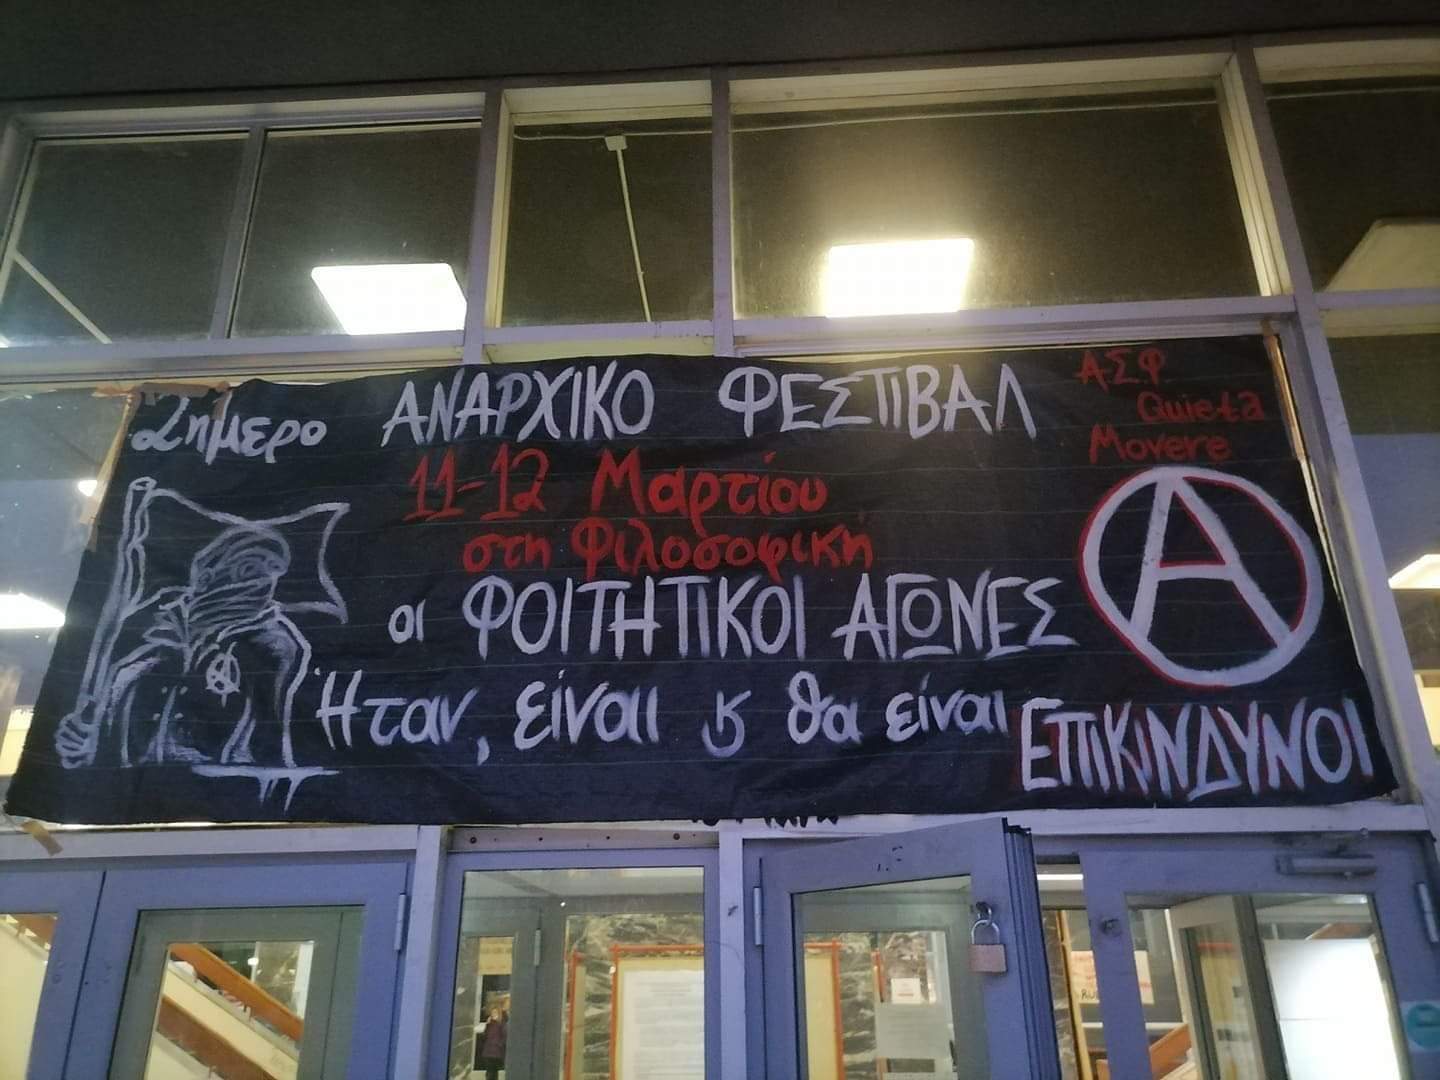 2ημερο ΑΝΑΡΧΙΚΟ ΦΕΣΤΙΒΑΛ
Α.Σ.Φ
Quieta
Movere
11-12 Μαρτίου
στη Φιλοσοφική
οι ΦΟΙΤΗΤΙΚΟΙ ΑΓΩΝΕΣ
Ήταν, είναι ϗ θα είναι ΕΠΙΚΙΝΔΥΝΟΙ
A
A